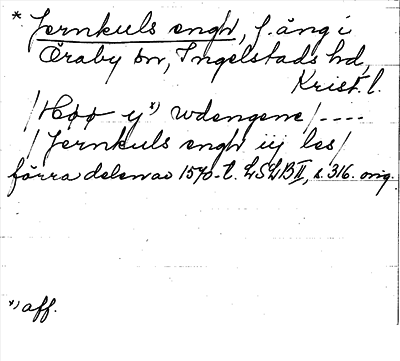 * Jernkuls engh, f. äng i
Öraby sn, Ingelstads hd,
Krist. l.
/ Høø y *) wdengene / ----
/ Jernkuls engh iij les /
förra delen av 1570-t. LSLB II, s. 316. orig.
*) aff.